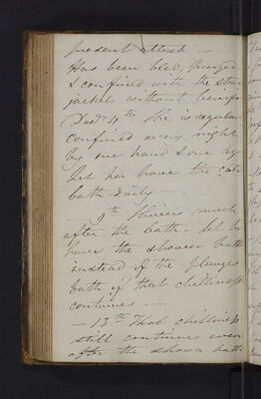 present attack —
Has been bled, purged
& confined with the strait
jacket without being
Decr 4th She is regular
confined every night
by one hand & one leg
Let her have the cold
bath daily —
7th Shivers much
after the bath. Let her
have the shower bath
instead of the plunge
bath if that chilliness
continues. —
— 13th That chilliness
still continues even
after the shower bath